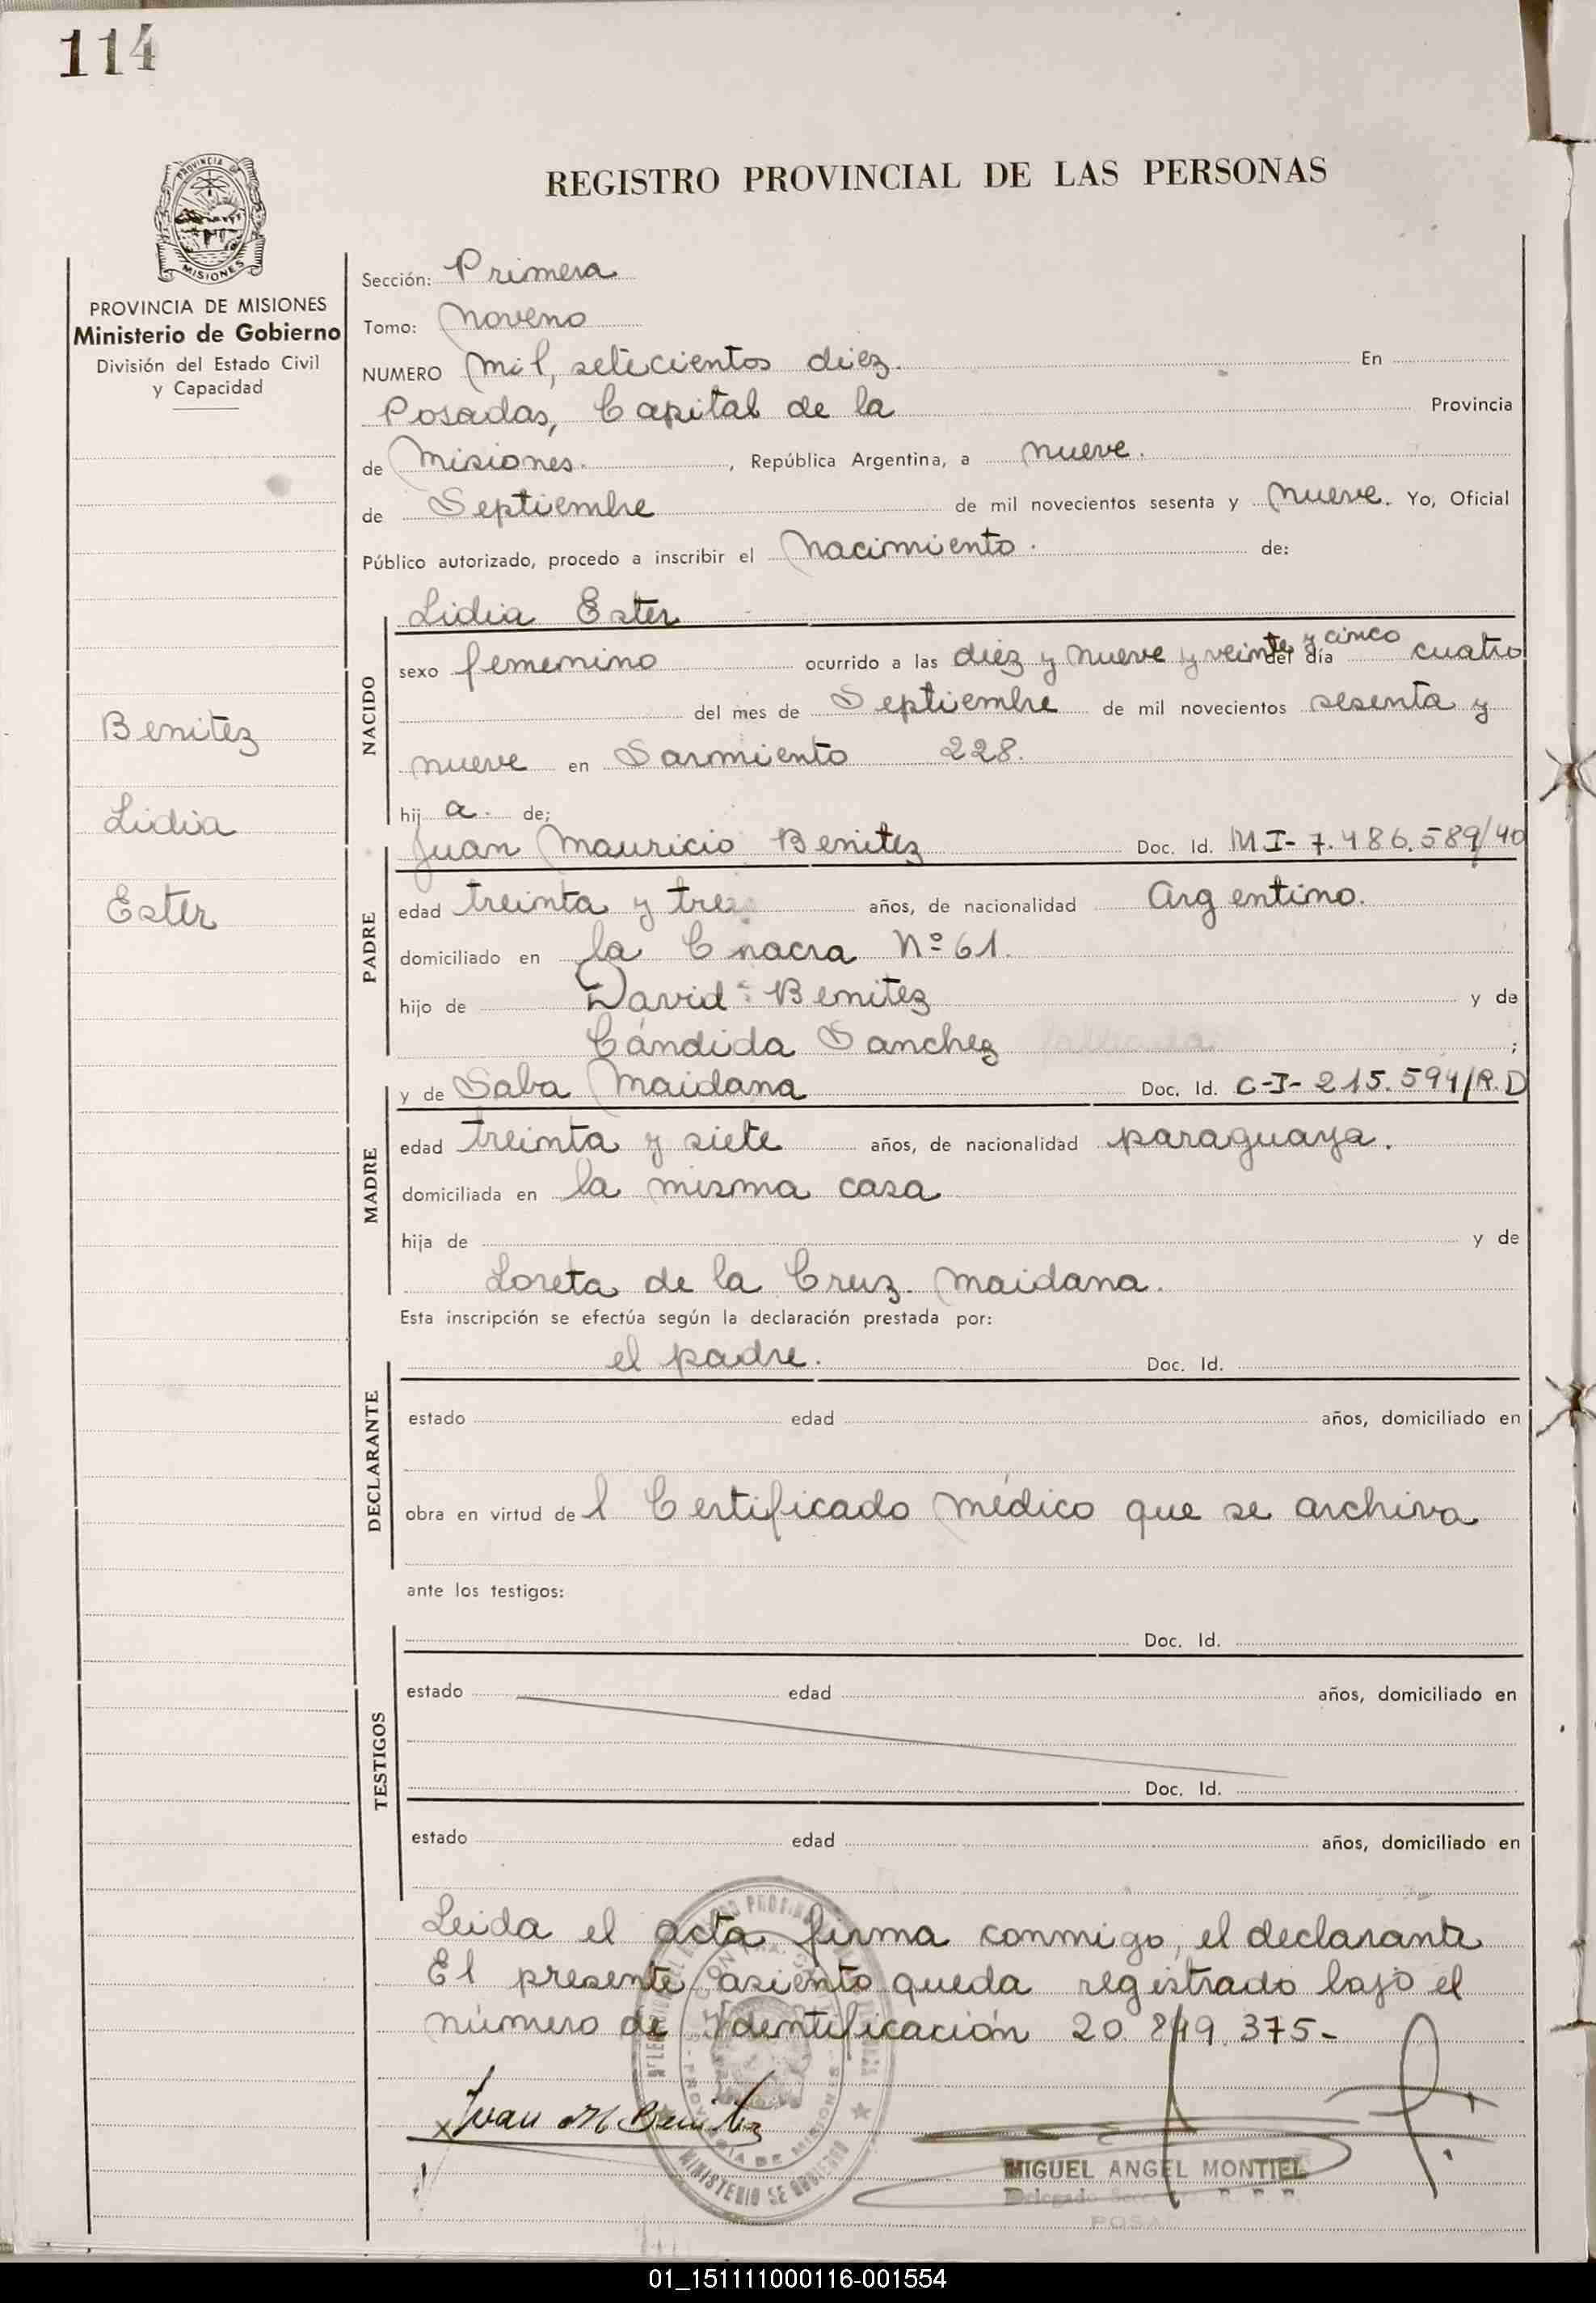 114
PROVINCIA DE
MISIONES
REGISTRO PROVINCIAL DE LAS PERSONAS
PROVINCIA DE MISIONES
Ministerio de Gobierno
División del Estado Civil
y Capacidad
Benitez
Lidia
Ester
Sección: Primera
Tomo: Noveno
NUMERO Mil, setecientos diez. En
Posadas, Capital de la Provincia
de Misiones. , República Argentina, a nueve.
de Septiembre de mil novecientos sesenta y nueve. Yo, Oficial
Público autorizado, procedo a inscribir el Nacimiento. de:
NACIDO
Lidia Ester
sexo femenino ocurrido a las diez y nueve y veinte y cinco del día cuatro
del mes de Septiembre de mil novecientos sesenta y
nueve en Sarmiento 228.
hij a. de;
PADRE
Juan Mauricio Benitez Doc. Id. M I- 7.486.589/40
edad treinta y tres años, de nacionalidad Argentino.
domiciliado en la Chacra Nº 61.
hijo de David Benitez y de
Cándida Sanchez ;
MADRE
y de Saba Maidana Doc. Id. C-I- 215.594/R.D
edad treinta y siete años, de nacionalidad paraguaya.
domiciliada en la misma casa
hija de y de
Loreta de la Cruz Maidana.
Esta inscripción se efectúa según la declaración prestada por:
DECLARANTE
el padre. Doc. Id.
estado edad años, domiciliado en
obra en virtud de l Certificado médico que se archiva
ante los testigos:
TESTIGOS
Doc. Id.
estado edad años, domiciliado en
Doc. Id.
estado edad años, domiciliado en
Leida el acta firma conmigo, el declarante
El presente asiento queda registrado bajo el
número de Identificación 20.849.375-
Juan M Benitez
PROVINCIA DE MISIONES
MINISTERIO DE GOBIERNO
MIGUEL ANGEL MONTIEL
Delegado R. P. P.
01_151111000116-001554